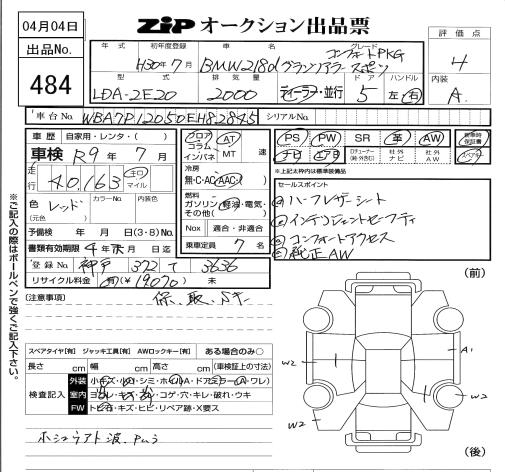 04月04日
ZiP オークション出品票
出品No.
484
年式 初年度登録 車名 グレード 評価点
H30年7月 BMW218d グランツアラー スポーツ コンフォートPKG 4
型式 排気量 ドア ハンドル 内装
LDA-2E20 2000 ディーラー・並行 5 左・右 A
車台No. WBA7P12050EH82845 シリアルNo.
車歴 自家用・レンタ・( )
車検 R9年7月
走行 40,163 キロ マイル
色 レッド カラーNo. 内装色
(元色)
予備検 年 月 日(3・8)No.
書類有効期限 4年 月 日迄
登録No. 神戸 372 て 3636
リサイクル料金 有(¥19070) 未
フロア コラム インパネ AT MT 速
冷房
無・C・AC・AAC
燃料
ガソリン・軽油・電気・その他( )
Nox 適合・非適合
乗車定員 7名
PS PW SR 革 AW 新車時保証書
ナビ エアB Dチューナー(純・外含む) 社外ナビ 社外AW
※上記太枠内は標準装備品
セールスポイント
①ハーフレザーシート
②インテリジェントセーフティ
③コンフォートアクセス
④純正AW
[注意事項] 保、取、Sキー
※ご記入の際はボールペンで強くご記入下さい。
スペアタイヤ[有] ジャッキ工具[有] AWロックキー[有] ある場合のみ○
長さ cm 幅 cm 高さ cm (車検証上の寸法)
検査記入
外装 小キズ・小凹・シミ・ホイルA・ドアミラー(A・ワレ)
室内 ヨゴレ・キズ・スレ・コゲ・穴・キレ・破れ・ウキ
FW トビ石・キズ・ヒビ・リペア跡・X要ス
(前)
A1
W2
W2
W2
(後)